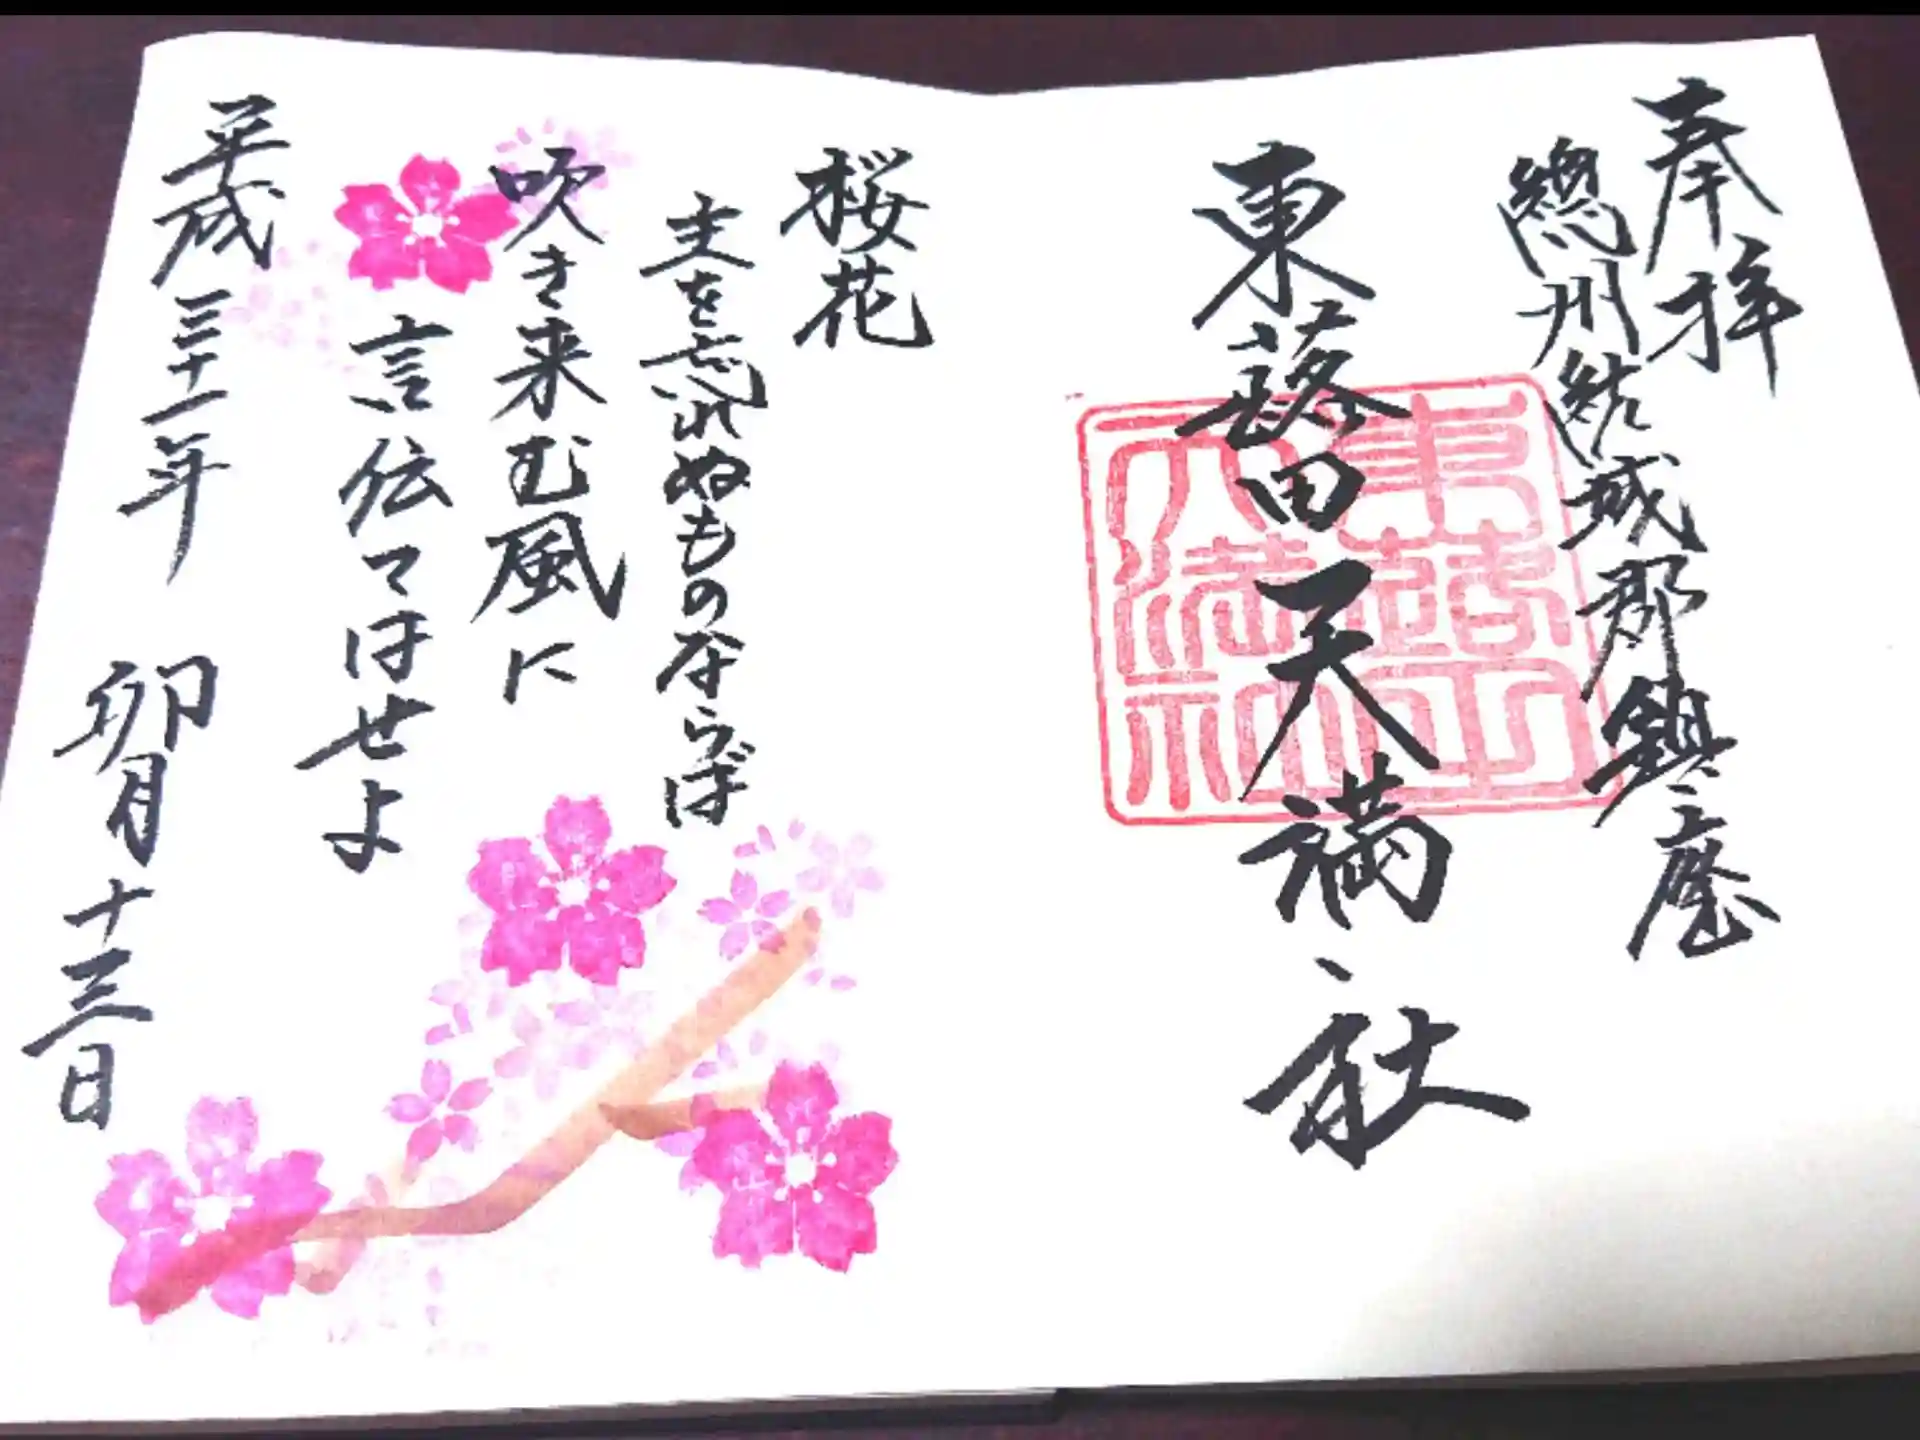 奉拝
總州結城郡鎮座
東蕗田天満社
東蕗田天満社
桜花
主を忘れぬものならば
吹き来む風に
言伝てはせよ
平成三十一年 卯月十三日